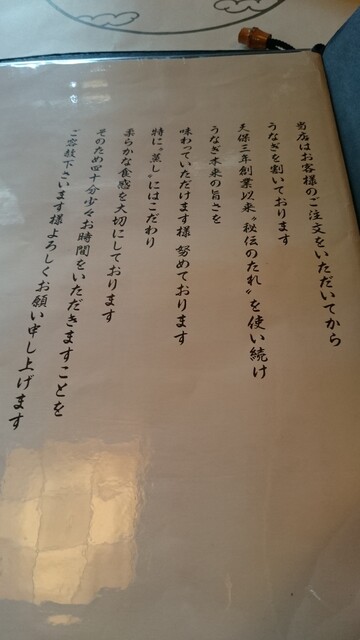 当店はお客様のご注文をいただいてから
うなぎを割いております
天保三年創業以来〝秘伝のたれ〟を使い続け
うなぎ本来の旨さを
味わっていただけます様 努めております
特に〝蒸し〟にはこだわり
柔らかな食感を大切にしております
そのため四十分少々お時間をいただきますことを
ご容赦下さいます様よろしくお願い申し上げます